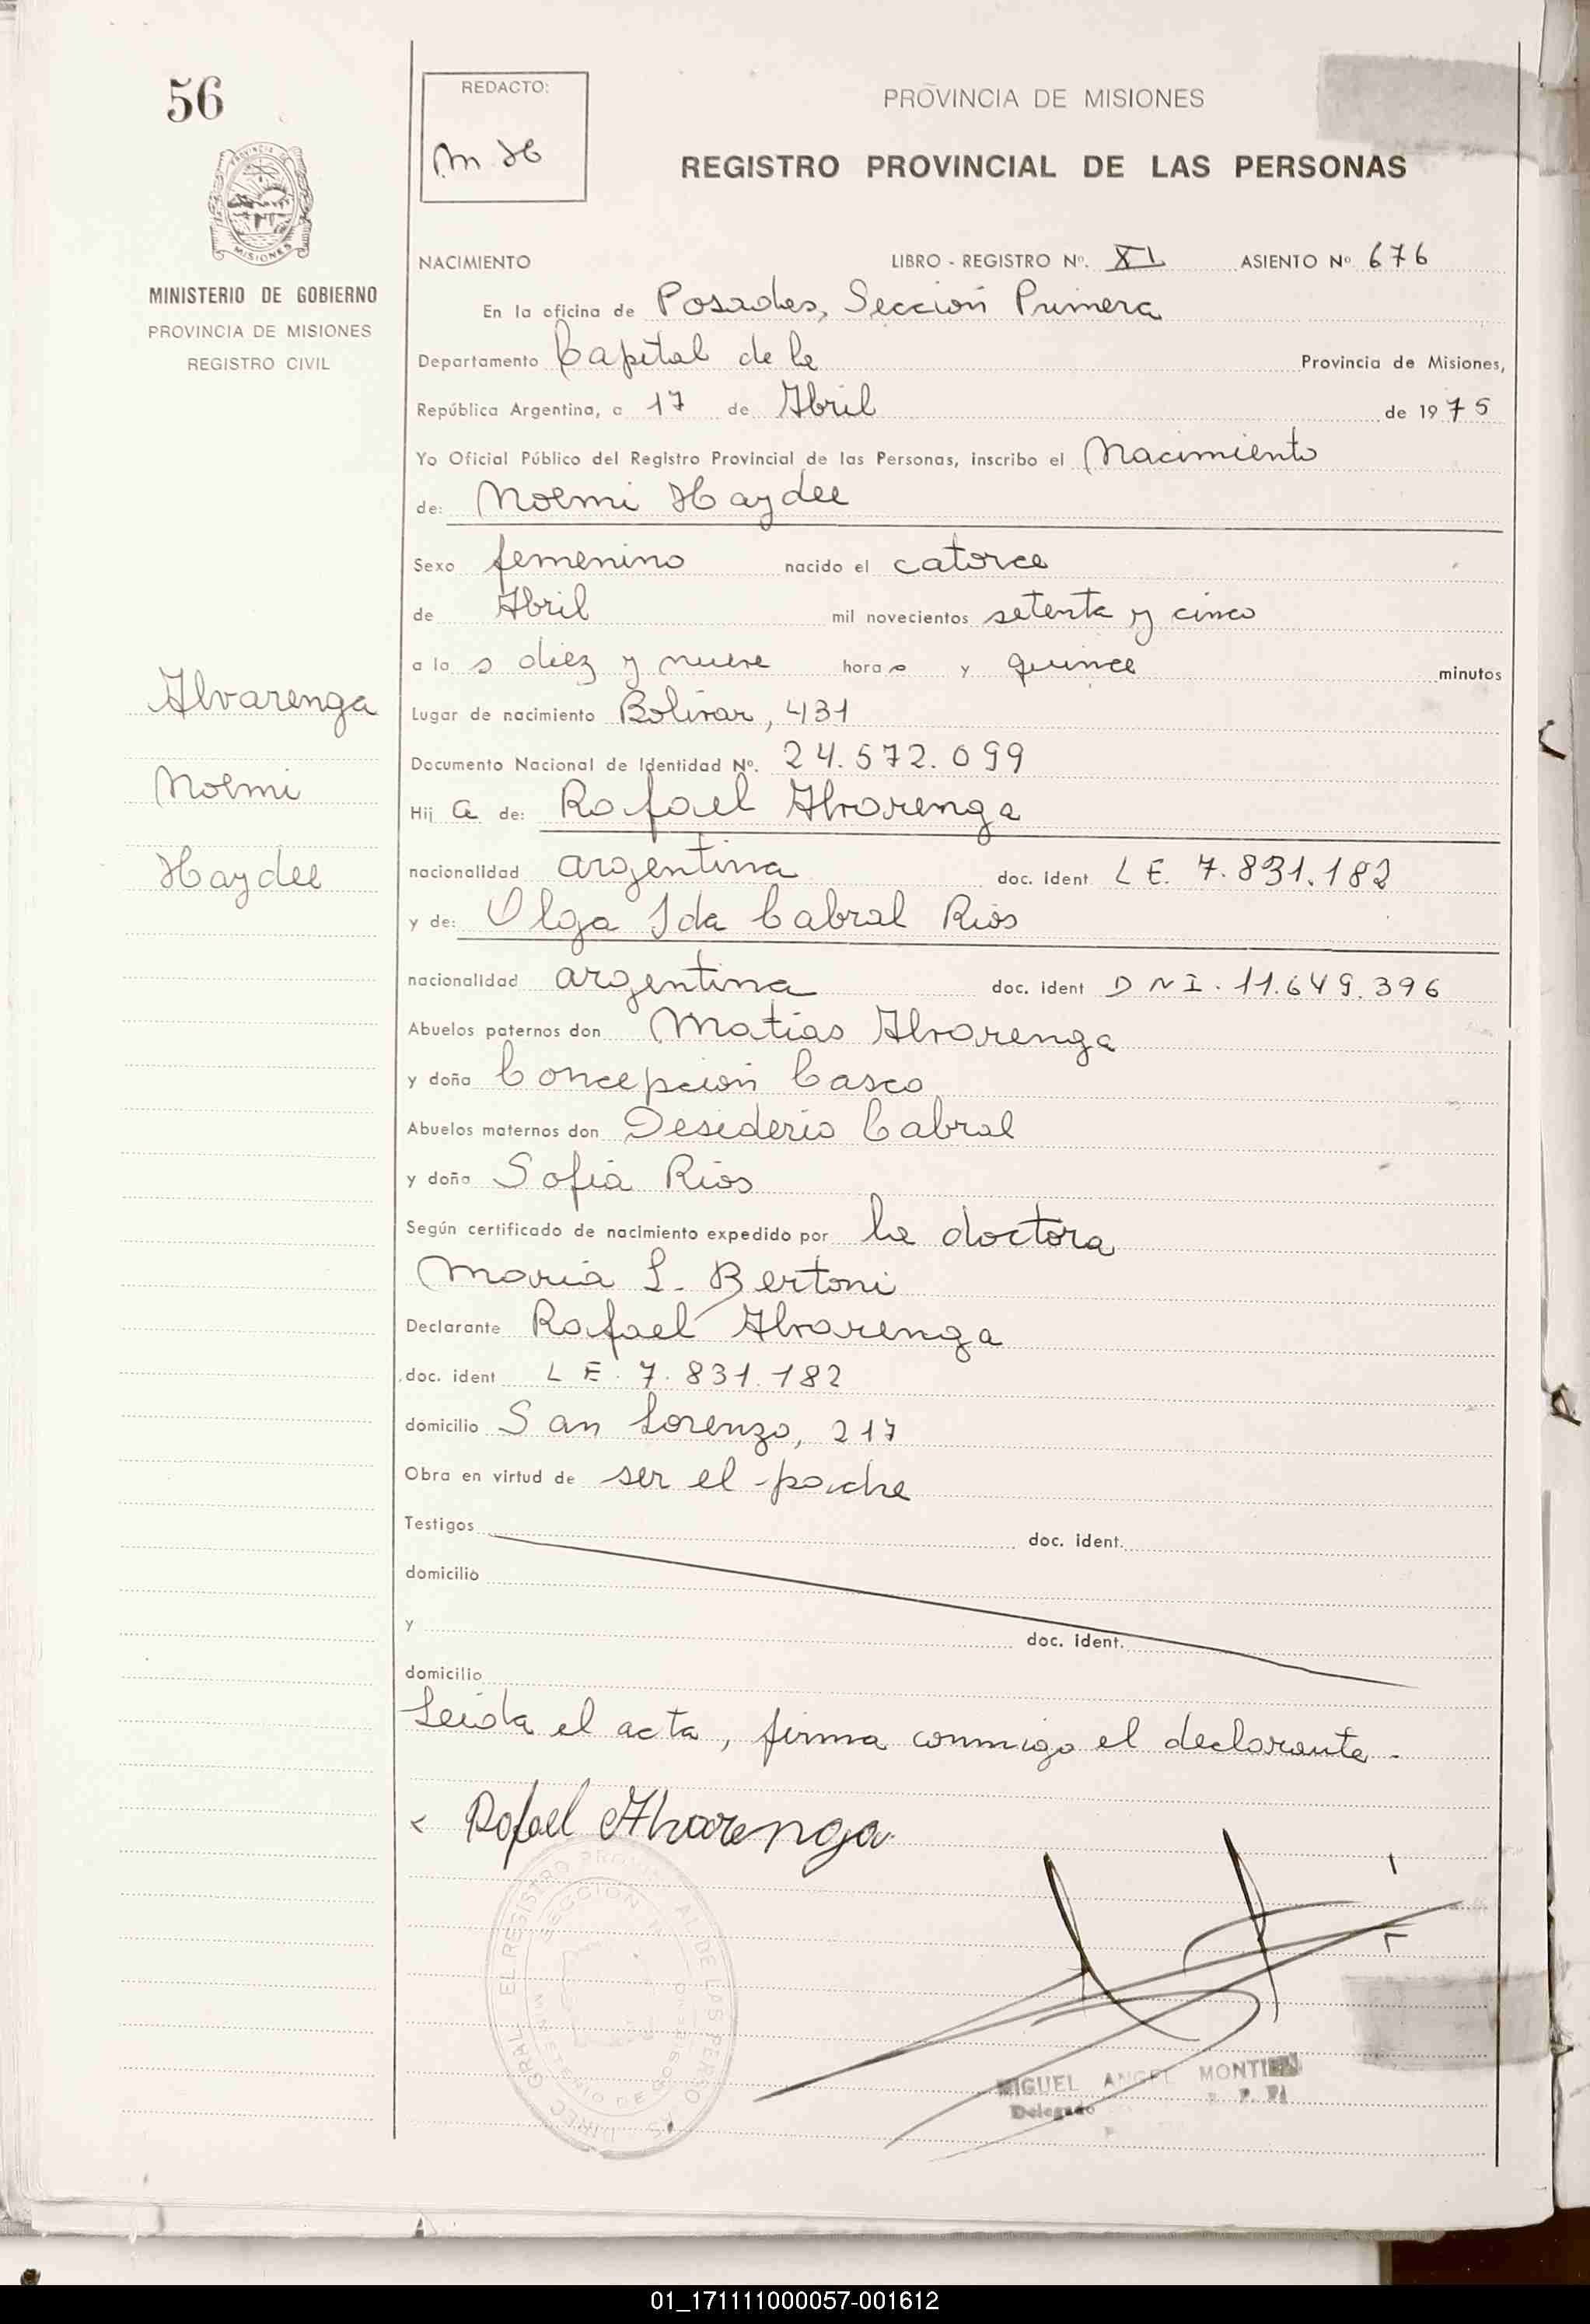 56
REDACTO:
M H
PROVINCIA DE MISIONES
REGISTRO PROVINCIAL DE LAS PERSONAS
MISIONES
MINISTERIO DE GOBIERNO
PROVINCIA DE MISIONES
REGISTRO CIVIL
NACIMIENTO LIBRO - REGISTRO Nº. XI ASIENTO Nº 676
En la oficina de Posadas, Sección Primera
Departamento Capital de la Provincia de Misiones,
República Argentina, a 17 de Abril de 1975
Yo Oficial Público del Registro Provincial de las Personas, inscribo el Nacimiento
de: Noemi Haydee
Sexo femenino nacido el catorce
de Abril mil novecientos setenta y cinco
a la s diez y nueve hora s y quince minutos
Alvarenga
Noemi
Haydee
Lugar de nacimiento Bolívar, 431
Documento Nacional de Identidad Nº. 24.572.099
Hij a de: Rafael Alvarenga
nacionalidad argentina doc. ident LE. 7.831.182
y de: Olga Ida Cabral Ríos
nacionalidad argentina doc. ident DNI. 11.649.396
Abuelos paternos don Matías Alvarenga
y doña Concepción Casco
Abuelos maternos don Desiderio Cabral
y doña Sofía Ríos
Según certificado de nacimiento expedido por la doctora
María L. Bertoni
Declarante Rafael Alvarenga
doc. ident LE. 7.831.182
domicilio San Lorenzo, 217
Obra en virtud de ser el padre
Testigos doc. ident.
domicilio
y doc. ident.
domicilio
Leída el acta, firma conmigo el declarante.
Rafael Alvarenga
MIGUEL ANGEL MONTIEL
Delegado
01_171111000057-001612